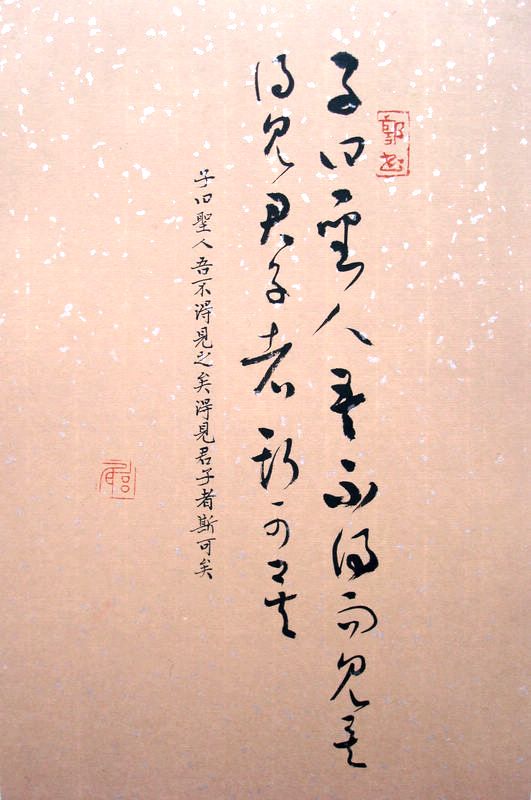 郭
子曰聖人吾不得而見矣
得見君子者斯可矣
子曰聖人吾不得見之矣得見君子者斯可矣